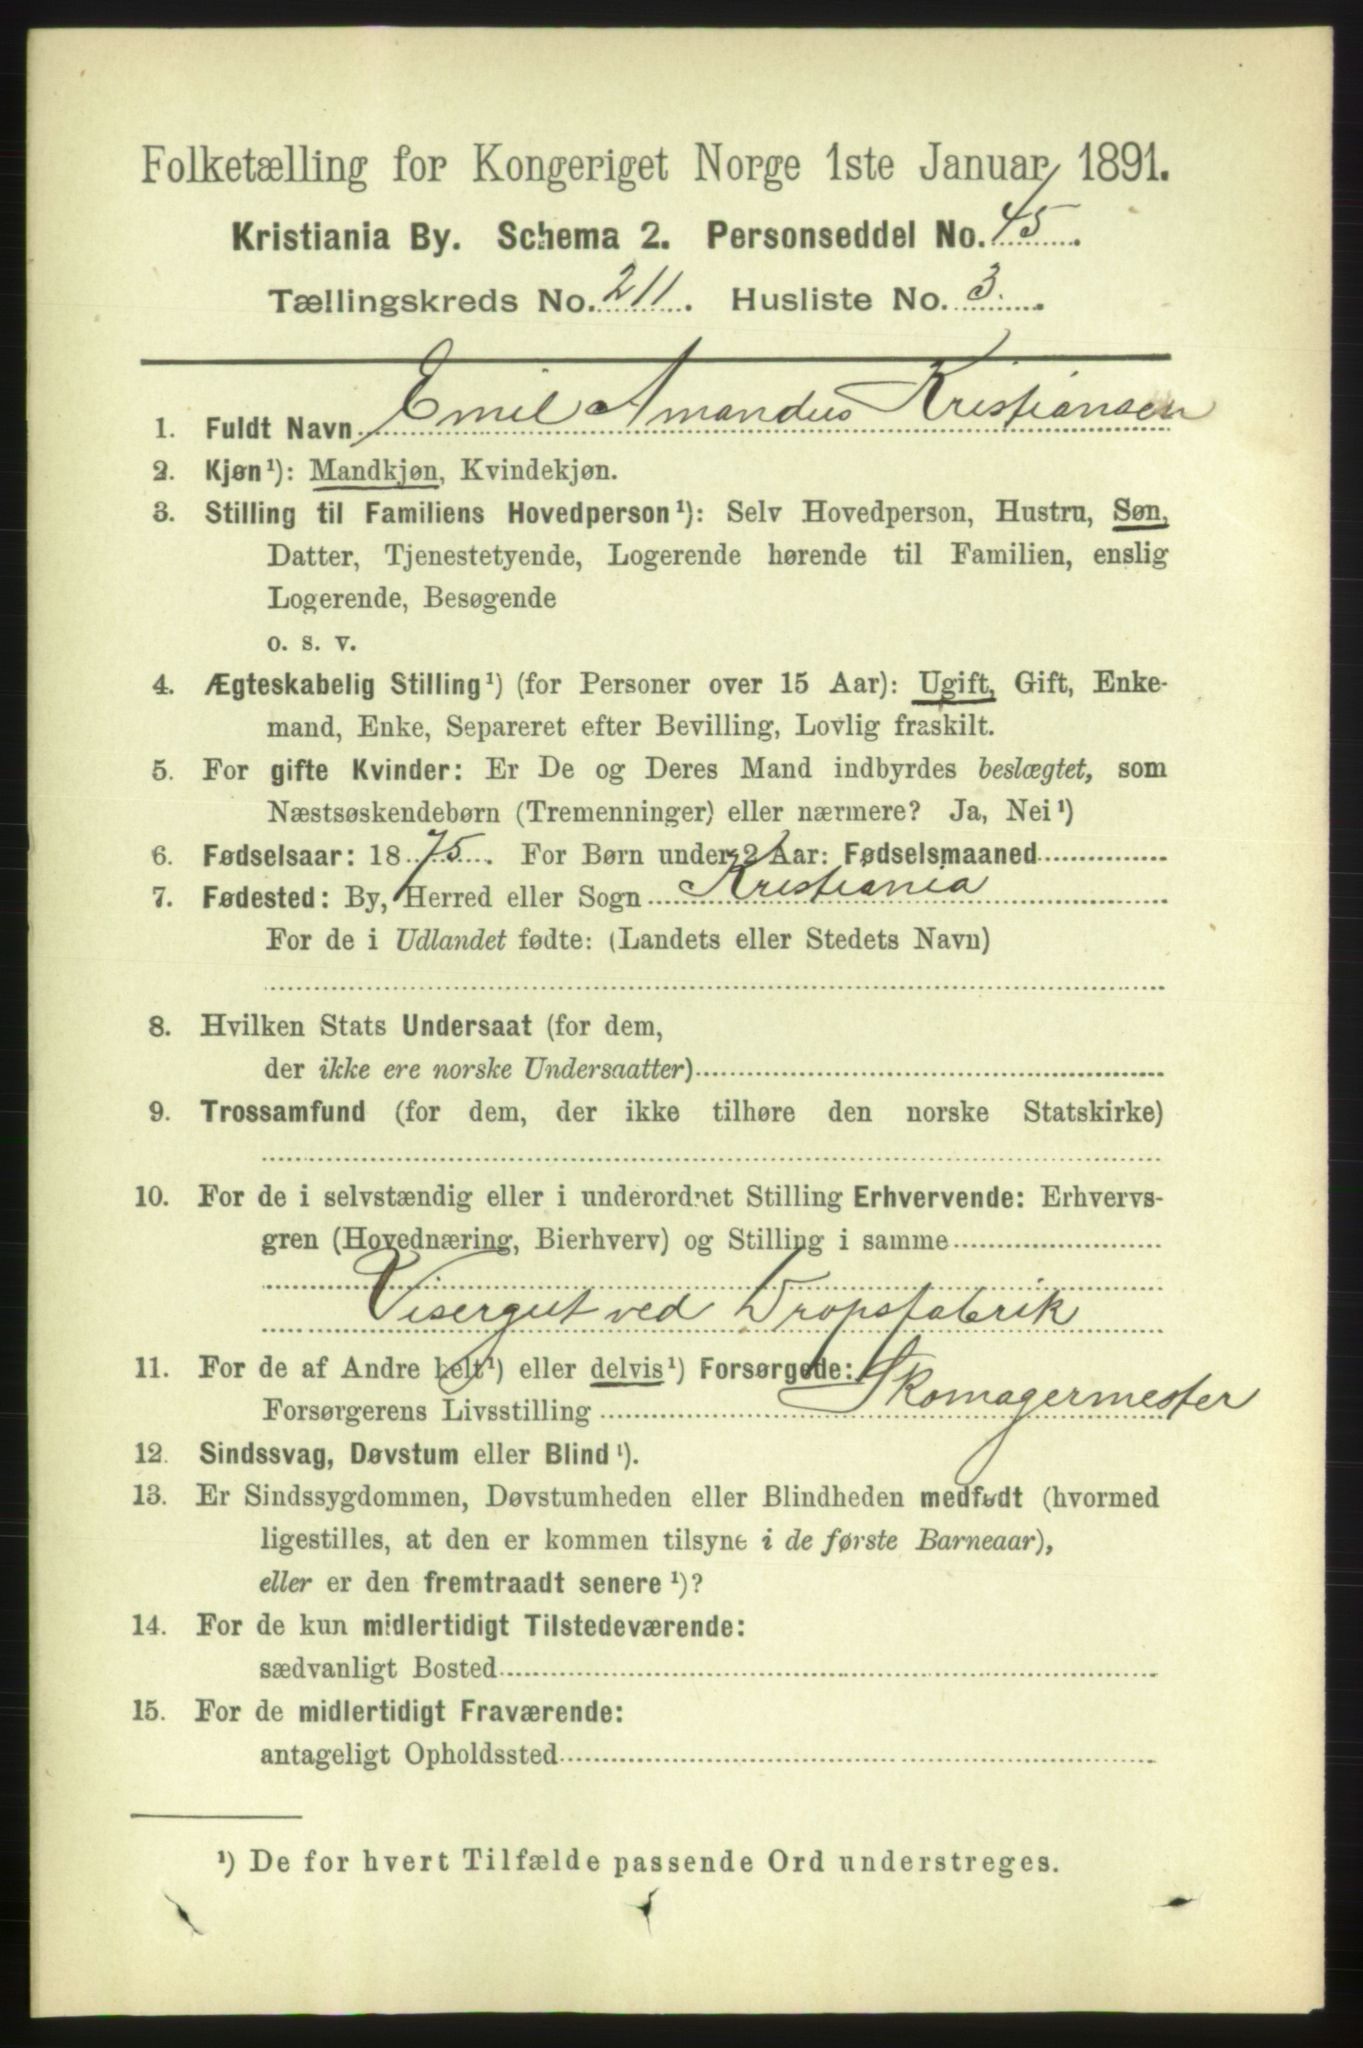 Folketælling for Kongeriget Norge 1ste Januar 1891.
Kristiania By. Schema 2. Personseddel No. 45.
Tællingskreds No. 211. Husliste No. 3.
1. Fuldt Navn Emil Amandus Kristiansen
2. Kjøn¹): Mandkjøn, Kvindekjøn.
3. Stilling til Familiens Hovedperson¹): Selv Hovedperson, Hustru, Søn,
Datter, Tjenestetyende, Logerende hørende til Familien, enslig
Logerende, Besøgende
o. s. v.
4. Ægteskabelig Stilling¹) (for Personer over 15 Aar): Ugift, Gift, Enke-
mand, Enke, Separeret efter Bevilling, Lovlig fraskilt.
5. For gifte Kvinder: Er De og Deres Mand indbyrdes beslægtet, som
Næstsøskendebørn (Tremenninger) eller nærmere? Ja, Nei¹)
6. Fødselsaar: 1875. For Børn under 2 Aar: Fødselsmaaned
7. Fødested: By, Herred eller Sogn Kristiania
For de i Udlandet fødte: (Landets eller Stedets Navn)
8. Hvilken Stats Undersaat (for dem,
der ikke ere norske Undersaatter)
9. Trossamfund (for dem, der ikke tilhøre den norske Statskirke)
10. For de i selvstændig eller i underordnet Stilling Erhvervende: Erhvervs-
gren (Hovednæring, Bierhverv) og Stilling i samme
Visergut ved Dropsfabrik
11. For de af Andre helt¹) eller delvis¹) Forsørgede:
Forsørgerens Livsstilling Skomagermester
12. Sindssvag, Døvstum eller Blind¹).
13. Er Sindssygdommen, Døvstumheden eller Blindheden medfødt (hvormed
ligestilles, at den er kommen tilsyne i de første Barneaar),
eller er den fremtraadt senere¹)?
14. For de kun midlertidigt Tilstedeværende:
sædvanligt Bosted
15. For de midlertidigt Fraværende:
antageligt Opholdssted
¹) De for hvert Tilfælde passende Ord understreges.